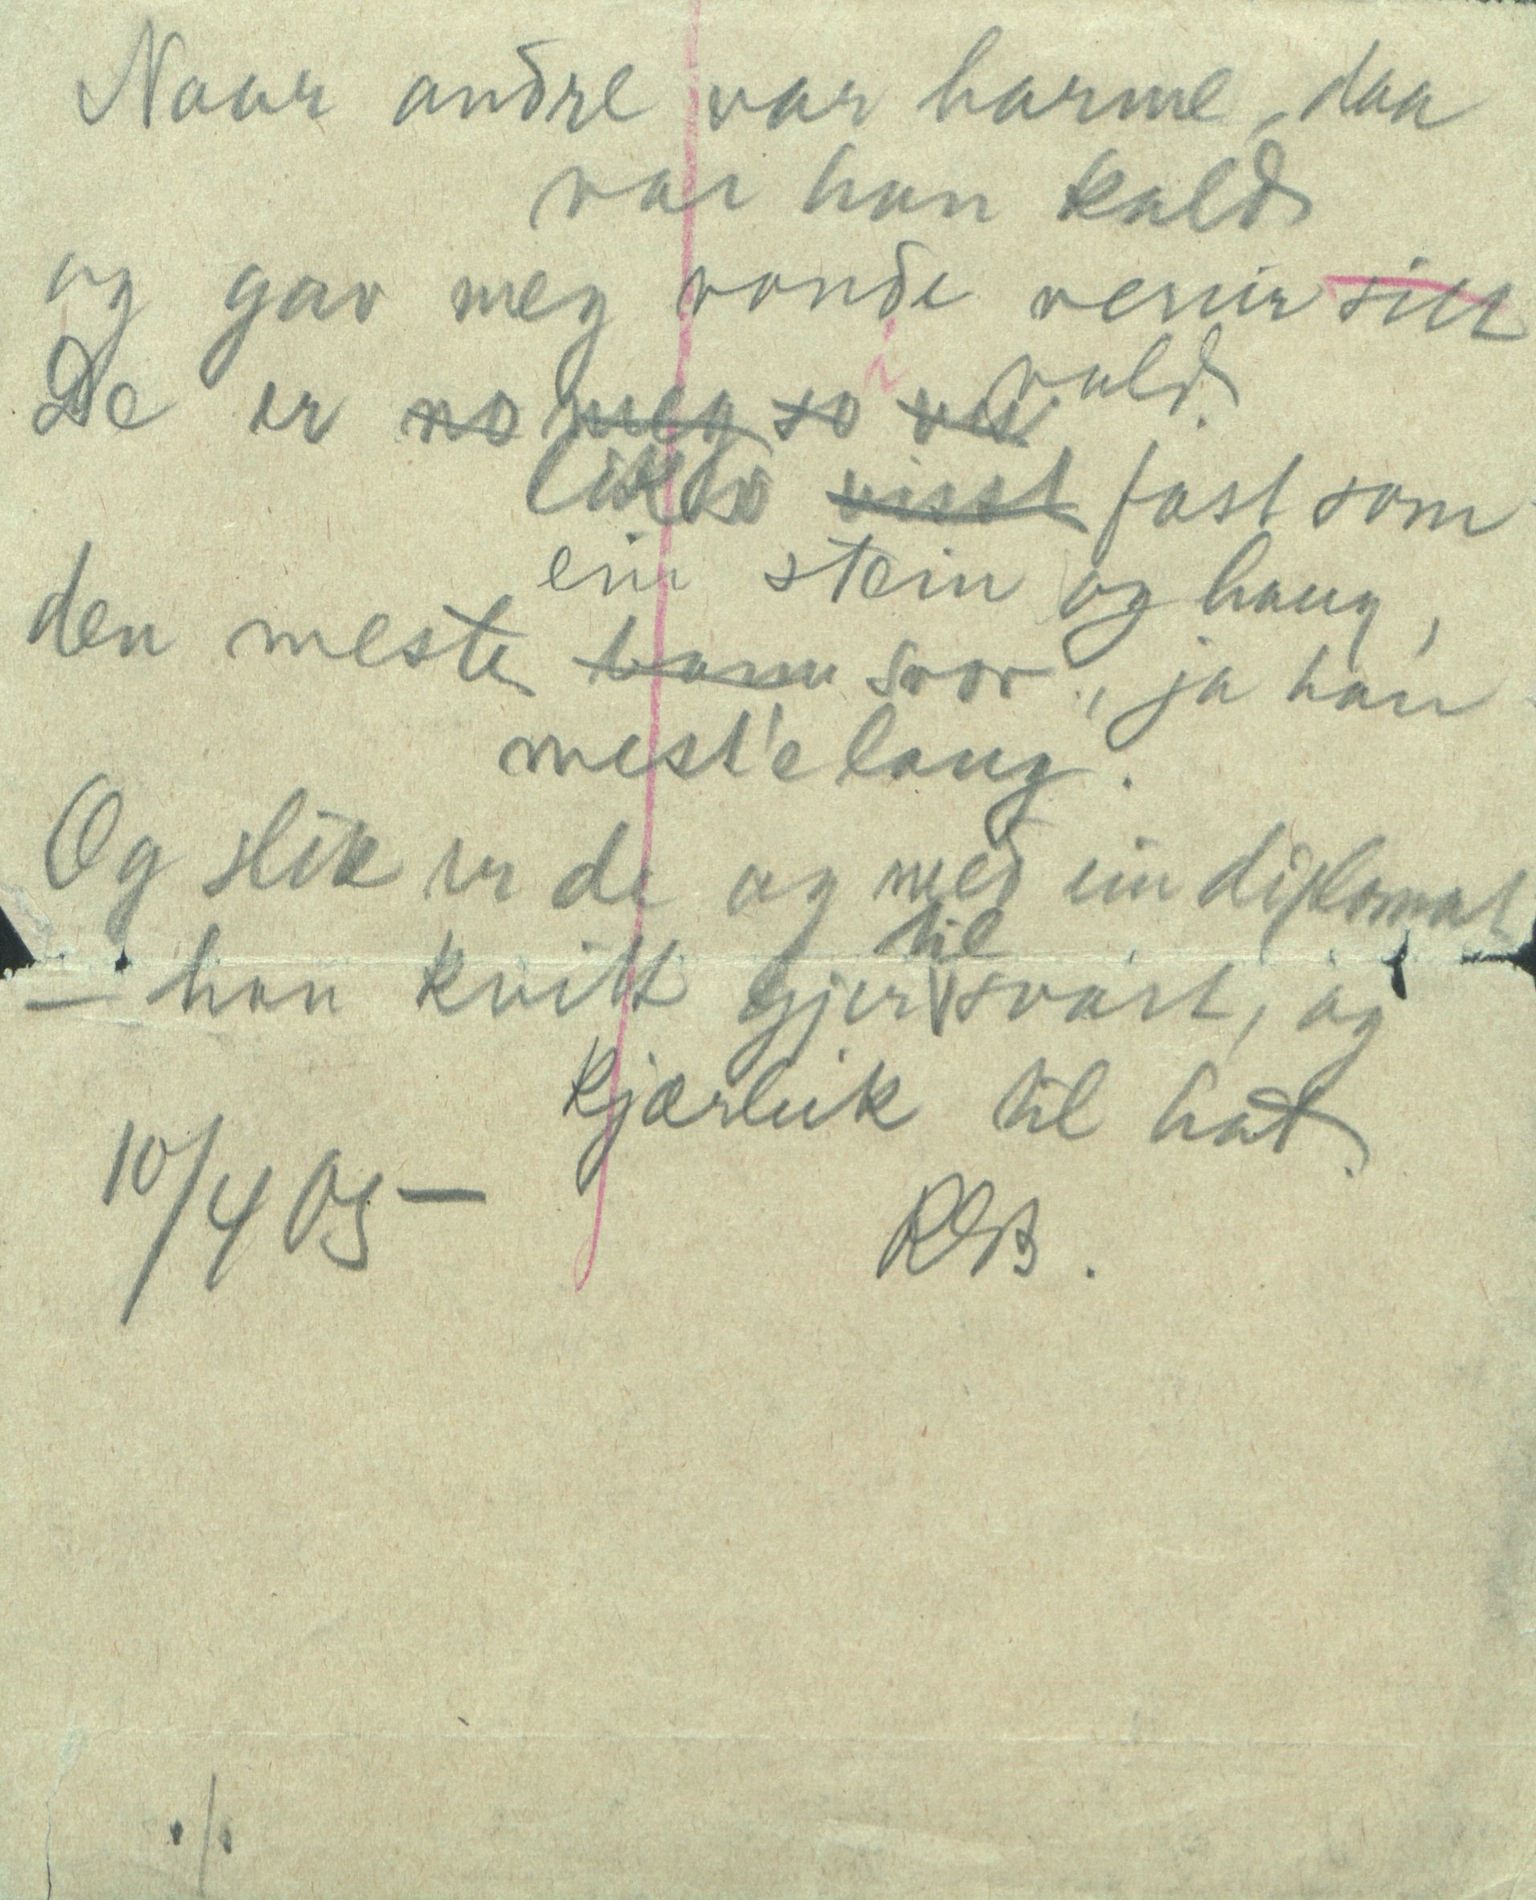 Naar andre var harme, daa
var han kald
og gav meg vonde venir sitt
i vald.
De er no meg so vis
likso visst fast som
ein stein og haug,
den meste bann svor, ja han
mest'e laug.
Og slik er de og med ein diplomat
til
— han kvitt gjer svart, og
kjærleik til hat.
10/4 05 —
ROB.
./.